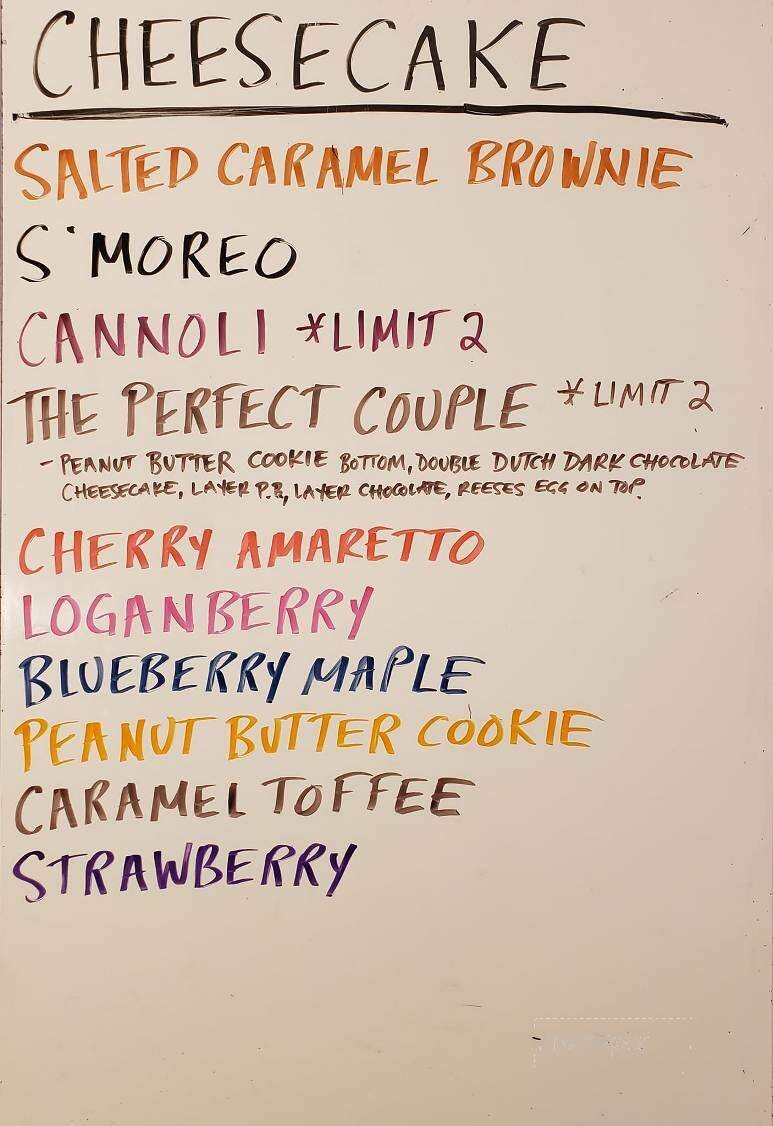 CHEESECAKE
SALTED CARAMEL BROWNIE
S'MOREO
CANNOLI *LIMIT 2
THE PERFECT COUPLE *LIMIT 2
- PEANUT BUTTER COOKIE BOTTOM, DOUBLE DUTCH DARK CHOCOLATE
CHEESECAKE, LAYER P.B, LAYER CHOCOLATE, REESES EGG ON TOP.
CHERRY AMARETTO
LOGANBERRY
BLUEBERRY MAPLE
PEANUT BUTTER COOKIE
CARAMEL TOFFEE
STRAWBERRY